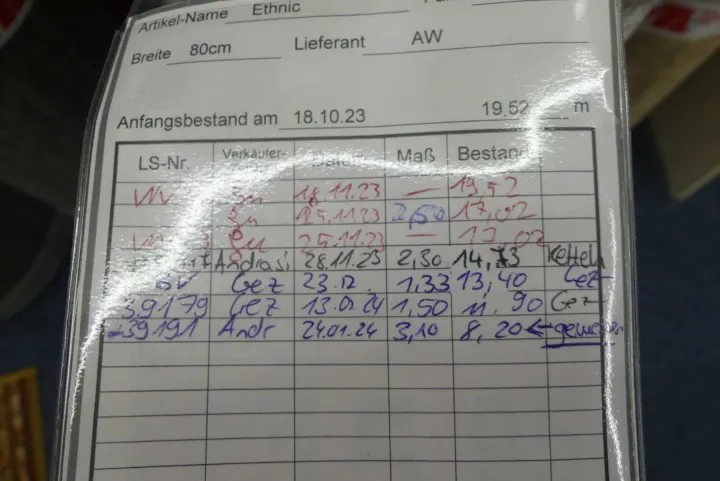 Artikel-Name Ethnic
Breite 80cm Lieferant AW
Anfangsbestand am 18.10.23 19,52 m
LS-Nr. Verkäufer- Datum Maß Bestand
18.11.23 — 19,52
2,50 17,02
25.11.23 — 17,02
Andrasi 28.11.23 2,30 14,73 Ketteln
Gez 23.12. 1,33 13,40 Gez
39179 Gez 13.01.24 1,50 11,90 Gez
39191 Andr 24.01.24 3,10 8,20 ← gemessen